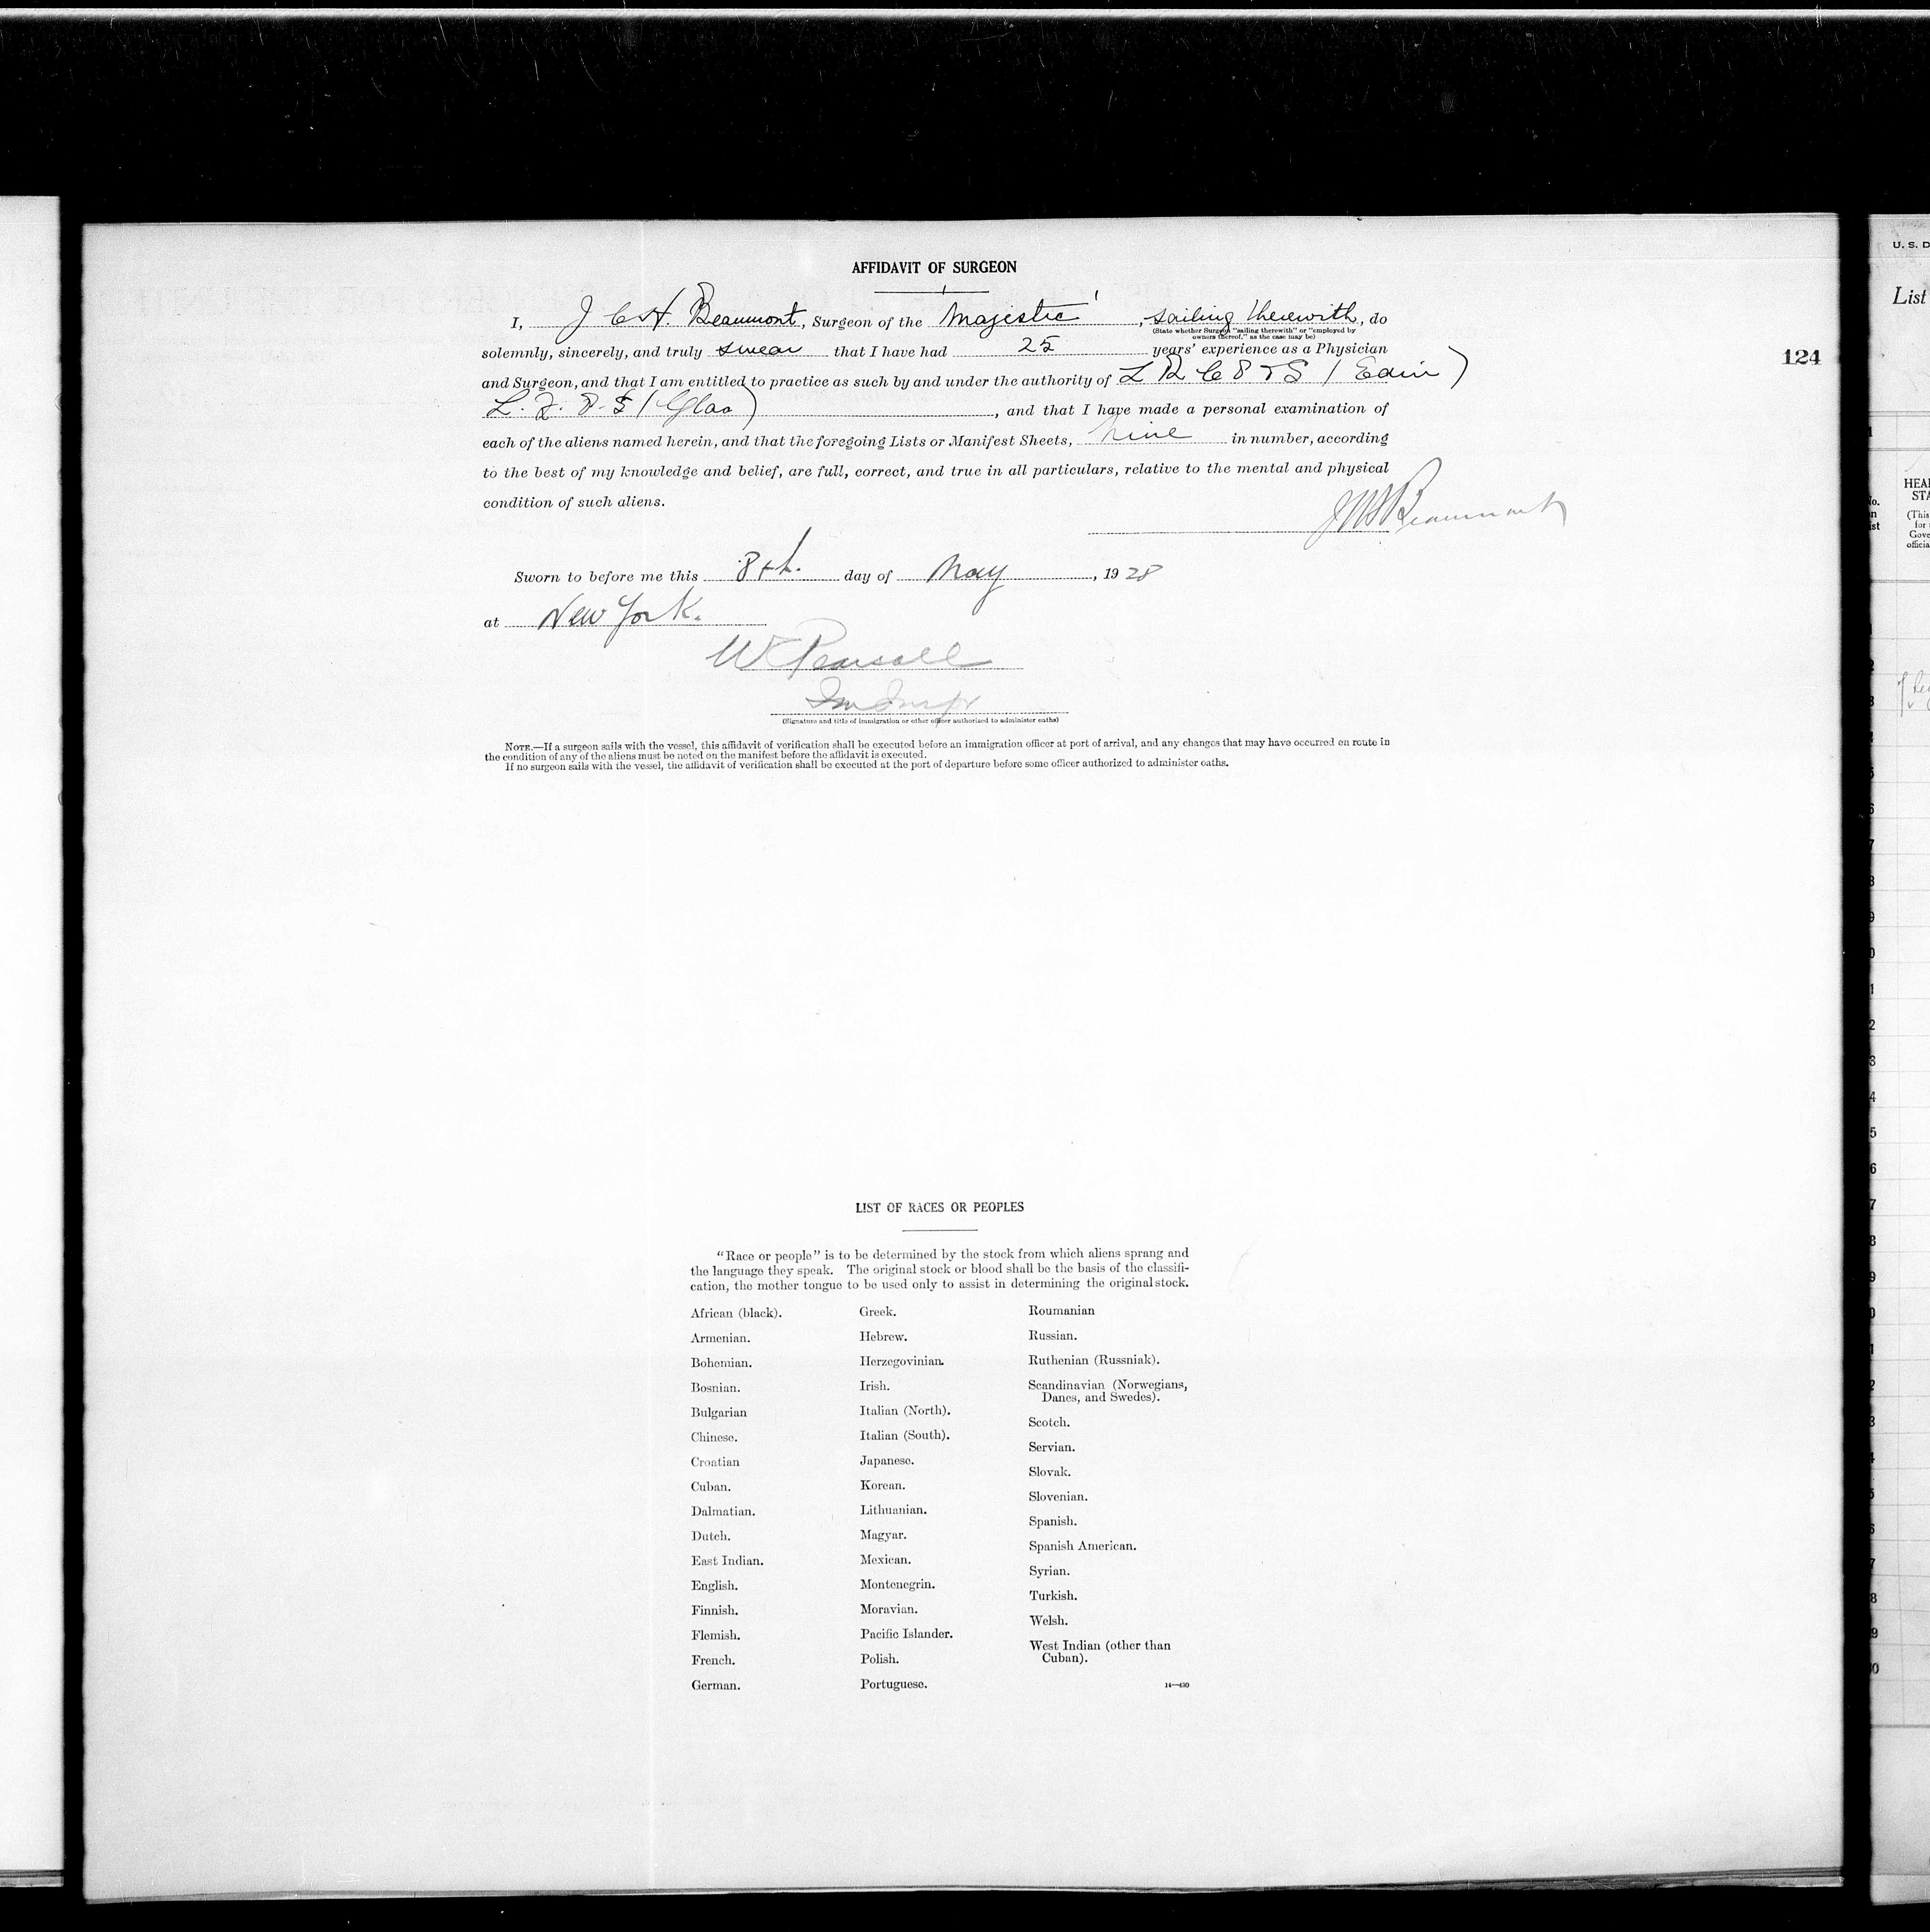 AFFIDAVIT OF SURGEON
I, J C H. Beaumont, Surgeon of the 'Majestic', sailing therewith, do
(State whether Surgeon "sailing therewith" or "employed by
owners thereof," as the case may be)
solemnly, sincerely, and truly swear that I have had 25 years' experience as a Physician
124
and Surgeon, and that I am entitled to practice as such by and under the authority of L R C P & S (Edin)
L. F. P. S (Glas), and that I have made a personal examination of
each of the aliens named herein, and that the foregoing Lists or Manifest Sheets, nine in number, according
to the best of my knowledge and belief, are full, correct, and true in all particulars, relative to the mental and physical
condition of such aliens.
JCHBeaumont
Sworn to before me this 8th. day of May, 1928
at New York.
W Pearsall
Im Inspr
(Signature and title of immigration or other officer authorized to administer oaths)
NOTE.—If a surgeon sails with the vessel, this affidavit of verification shall be executed before an immigration officer at port of arrival, and any changes that may have occurred en route in
the condition of any of the aliens must be noted on the manifest before the affidavit is executed.
If no surgeon sails with the vessel, the affidavit of verification shall be executed at the port of departure before some officer authorized to administer oaths.
LIST OF RACES OR PEOPLES
"Race or people" is to be determined by the stock from which aliens sprang and
the language they speak. The original stock or blood shall be the basis of the classifi-
cation, the mother tongue to be used only to assist in determining the original stock.
African (black).
Armenian.
Bohemian.
Bosnian.
Bulgarian
Chinese.
Croatian
Cuban.
Dalmatian.
Dutch.
East Indian.
English.
Finnish.
Flemish.
French.
German.
Greek.
Hebrew.
Herzegovinian.
Irish.
Italian (North).
Italian (South).
Japanese.
Korean.
Lithuanian.
Magyar.
Mexican.
Montenegrin.
Moravian.
Pacific Islander.
Polish.
Portuguese.
Roumanian
Russian.
Ruthenian (Russniak).
Scandinavian (Norwegians,
Danes, and Swedes).
Scotch.
Servian.
Slovak.
Slovenian.
Spanish.
Spanish American.
Syrian.
Turkish.
Welsh.
West Indian (other than
Cuban).
14—430
U. S. D
List
HEA
STA
(This
for
Gove
officia